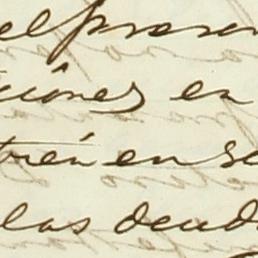 el presen
ciónes en
trén en se
las deud